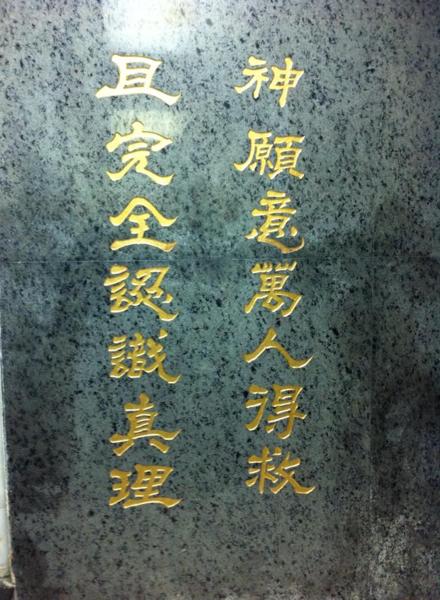 神願意萬人得救
且完全認識真理